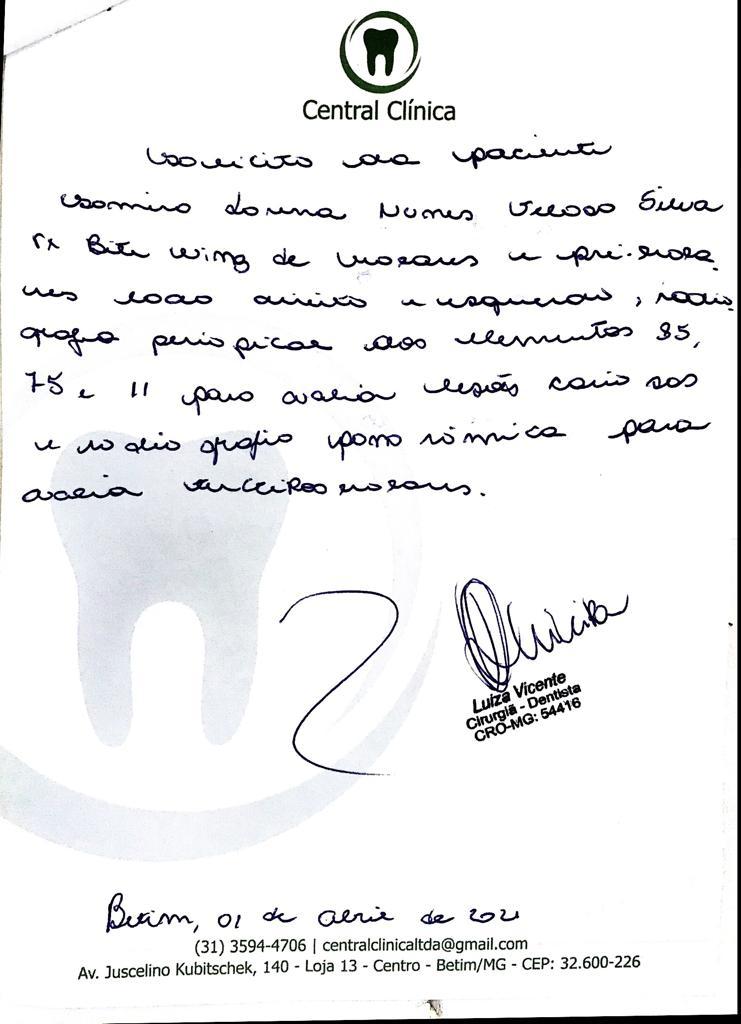 Central Clínica
Solicito da paciente
Lorena Nunes Veloso Silva
rx Bite wing de molares e pré-mola
res lado direito e esquerdo, radio
grafia periapical dos elementos 85,
75 e 11 para avalia lesões cariosas
e radiografia panorâmica para
avalia terceiros molares.
Luiza Vicente
Cirurgiã - Dentista
CRO-MG: 54416
Betim, 01 de abril de 2021
(31) 3594-4706 | centralclinicaltda@gmail.com
Av. Juscelino Kubitschek, 140 - Loja 13 - Centro - Betim/MG - CEP: 32.600-226